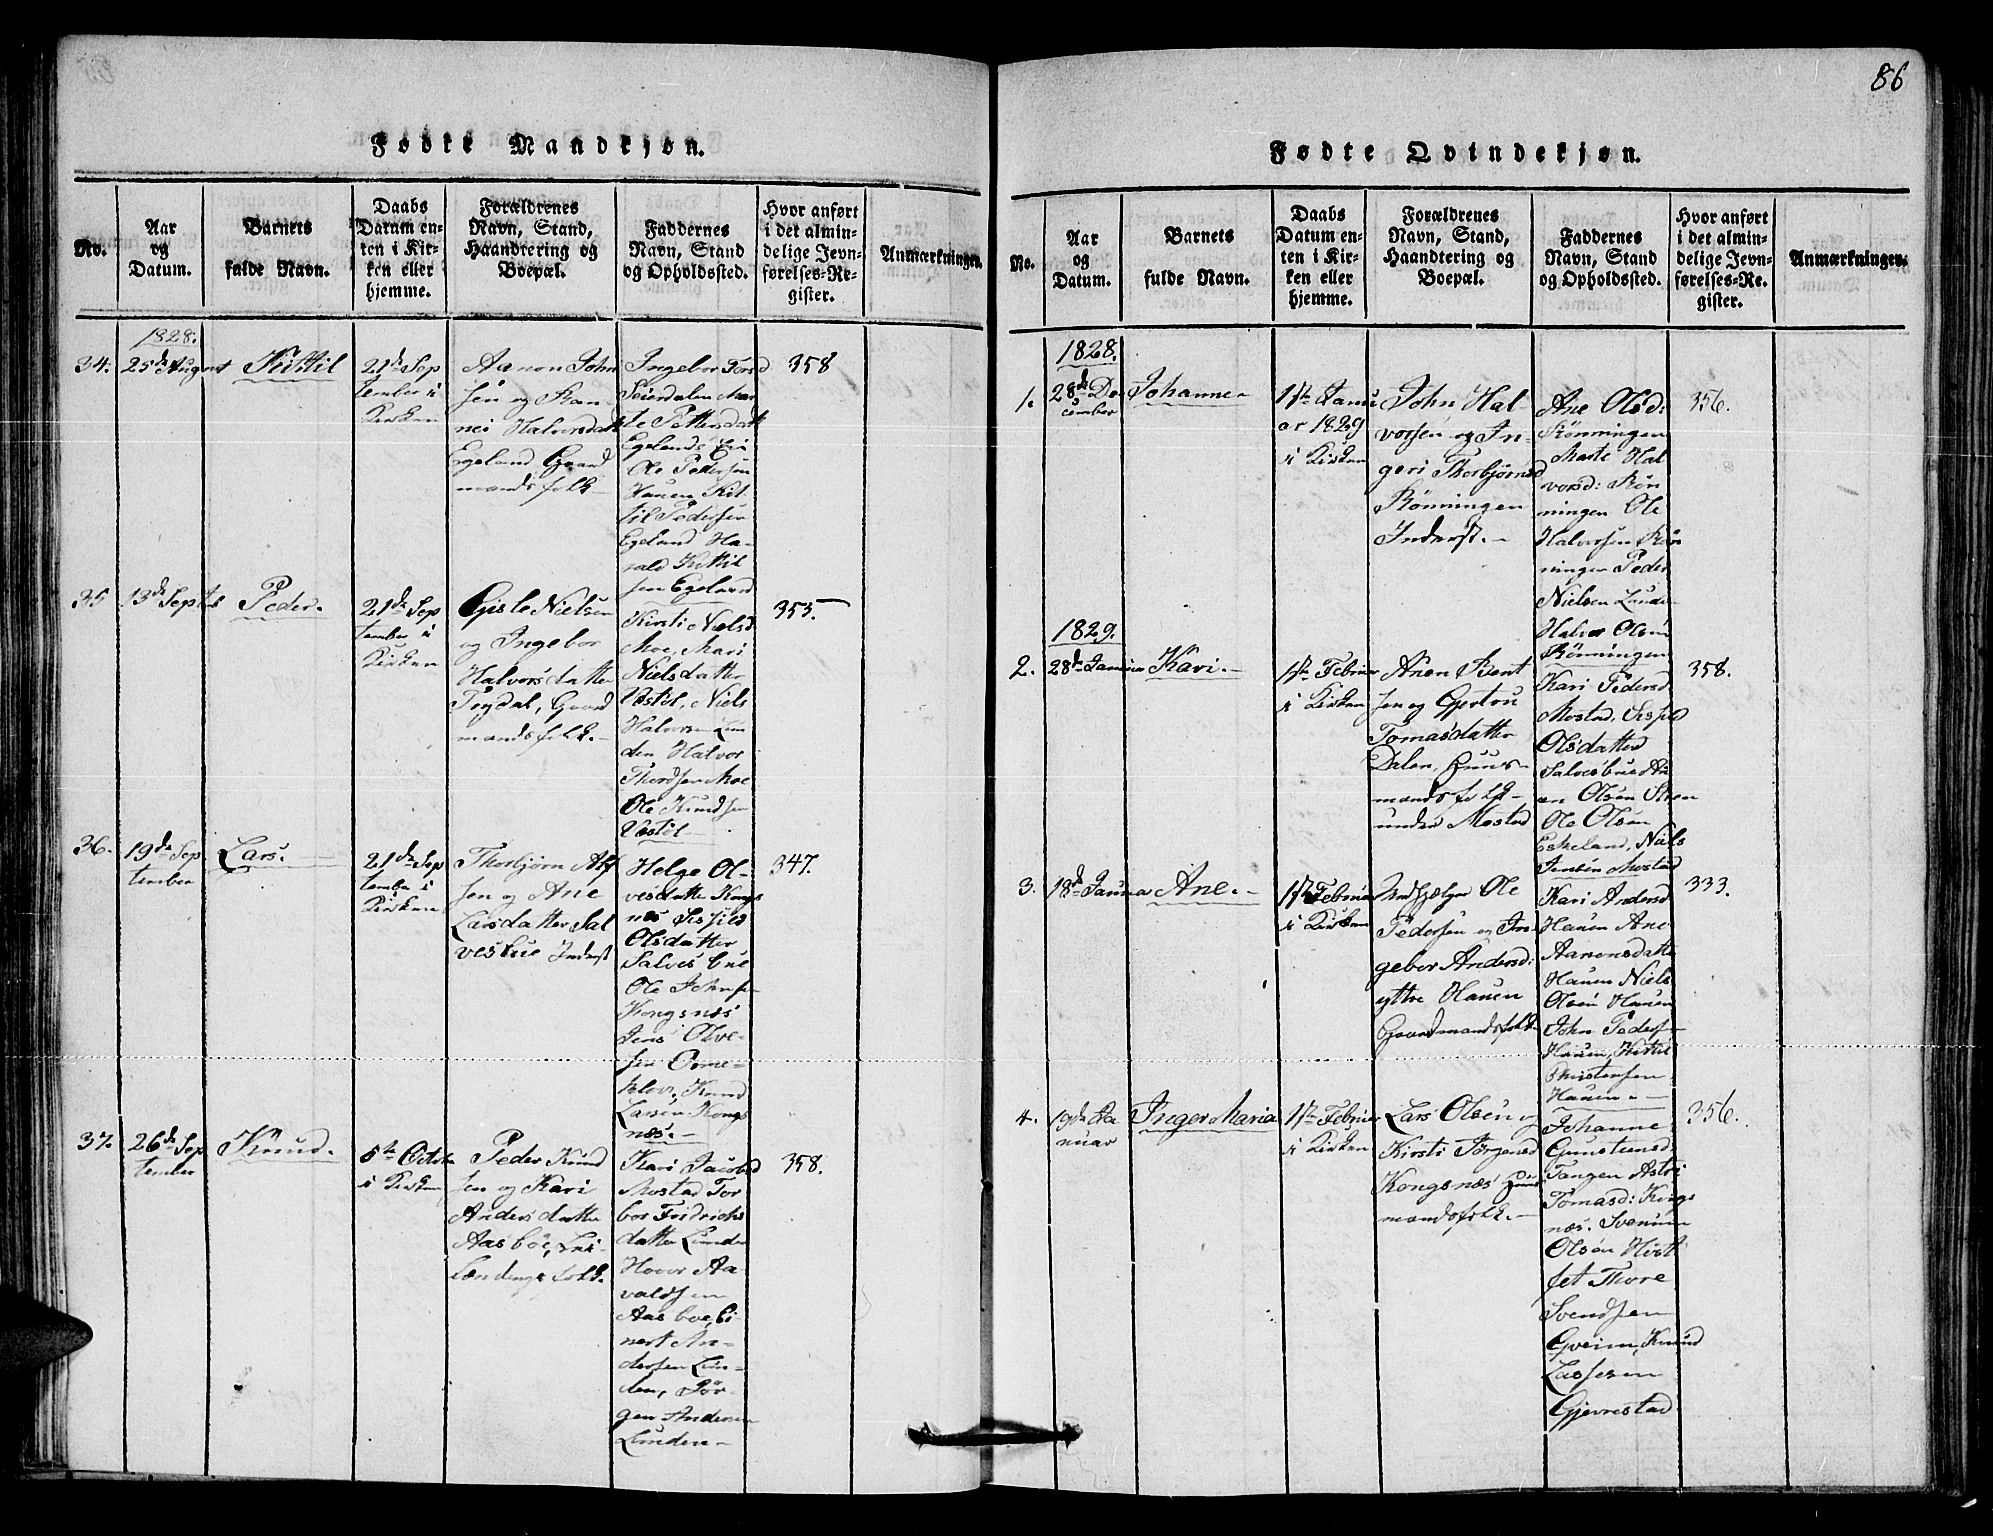 Fødte Mandkjøn.
No.
Aar
og
Datum.
Barnets
fulde Navn.
Daabs
Datum en-
ten i Kir-
ken eller
hjemme.
Forældrenes
Navn, Stand,
Haandtering og
Boepæl.
Faddernes
Navn, Stand
og Opholdssted.
Hvor anført
i det almin-
delige Jevn-
førelses-Re-
gister.
Anmærkninger.
1828.
34.
25de August
Kittil
21de Sep
tember i
Kirken
Aanon John
sen og
Halvorsdatt
Egeland Gaard
mandsfolk
Ingebor Tord
Seierdalen Mar
te Pettersdatt
Egeland
Ole Pedersen
Hauen Kit
til Pedersen
Egeland Ha-
rald Kittil
sen Egeland
358
35
13de Septbr
Peder.
21de Sep
tember i
Kirken
Gisle Nielsen
og Ingebor
Halvorsdatter
Gaard
mandsfolk.
Kirsti Nielsd
Moe, Mari
Nielsdatter
Vestøl, Niels
Halvorsen Lun
den Halvor
Thordsen Moe
Ole Knudsen
Vestøl
353
36.
19de Sep
tember
Lars.
21de Sep
tember i
Kirken
Thorbjørn Alf
sen og Ane
Larsdatter Sal
vesbue Inderst
Helge Ol-
vesdatter Kongs
næs Sissild
Olsdatter
Salvesbue
Ole Johnsen
Kongsnæs
Jens Olve-
sen Orme-
klov, Knud
Larsen Kongs
næs.
347.
37.
26de Sep
tember
Knud.
5te Octob
i Kirken
Peder Knud
sen og Kari
Andersdatter
Aasbøe,
folk.
Kari Jacobsd
Mostad Tor
bor Fridrichs
datter Lunden
Hovor Aa-
valdsen
Aasbøe, Ei
nert An-
dersen Lun-
den, Jør-
gen Andersen
Lunden
358.
86
Fødte Qvindekjøn.
No.
Aar
og
Datum.
Barnets
fulde Navn.
Daabs
Datum en-
ten i Kir-
ken eller
hjemme.
Forældrenes
Navn, Stand,
Haandtering og
Boepæl.
Faddernes
Navn, Stand
og Opholdssted.
Hvor anført
i det almin-
delige Jevn-
førelses-Re-
gister.
Anmærkninger.
1828.
1.
28de De
cember
Johanne
1ste Janu
ar 1829
i Kirken
John Hal-
vorsen og In-
geri Thorbjørnsd
Rønningen
Inderst.
Ane Olsd:
Rønningen
Marte Hal
vorsd: Røn
ningen Ole
Halvorsen Røn
ningen Peder
Nielsen Lunde
Halvor Olsen
Rønningen
356.
1829.
2.
28de Januar
Kari.
1ste Februar
i Kirken
Anen Bent
sen og Gjertru
Tomasdatter
Dalen, Huus-
mandsfolk
under Mostad
Kari Pedersd
Mostad, Sissild
Olsdatter
Salvesbue An
en Olsen Steen
Ole Olsen
Eskeland, Niels
Jensen Mostad
358.
3.
18de Januar
Ane.
1ste Februar
i Kirken
Ole
Pedersen og In-
gebor Andersd:
ytre Hauen
Gaardmandsfolk
Kari Andersd
Hauen Ane
Aanonsdatte
Hauen Niels
Olsen Hauen
John Peders
Hauen, Kittil
Christensen
Hauen.
333.
4.
19de Ja
nuar
Inger Maria
1ste Februar
i Kirken
Lars Olsen og
Kirsti Jørgensd
Kongsnæs Huus
mandsfolk.
Johanne
Gunsteensd:
Tangen Astri
Tomasd: Kongs
næs. Svenum
Olsen
Thore
Svendsen
Gveim, Knud
Lassesen
Gjevrestad
356.